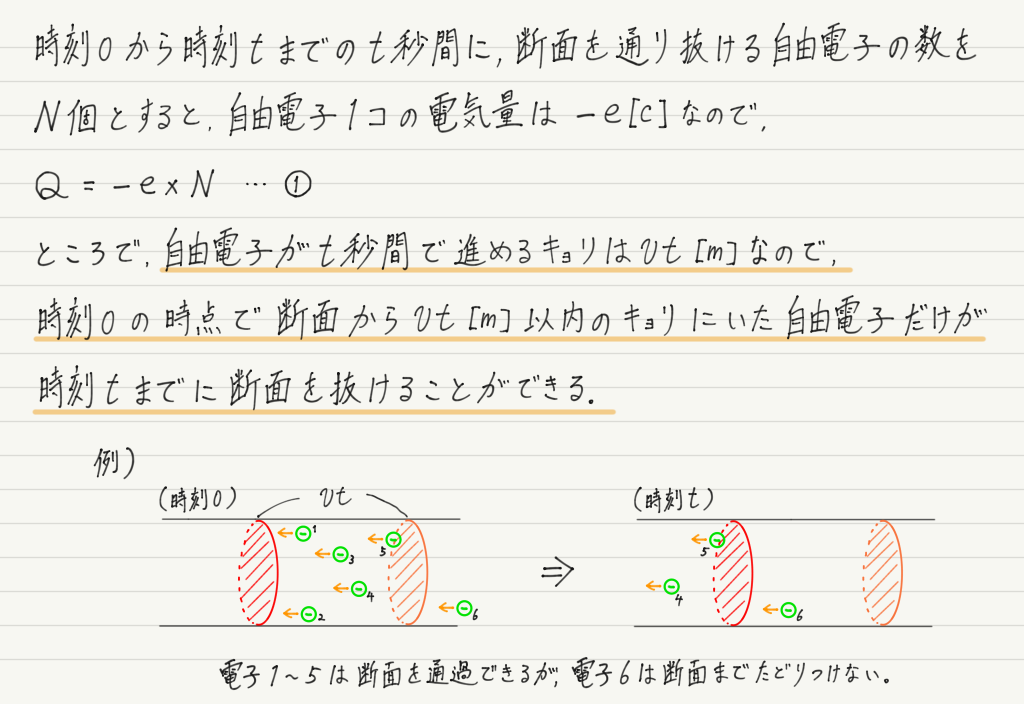 時刻0から時刻tまでのt秒間に,断面を通り抜ける自由電子の数を
N個とすると,自由電子1コの電気量は -e[c]なので,
Q = -e×N … ①
ところで,自由電子がt秒間で進めるキョリはvt[m]なので,
時刻0の時点で断面からvt[m]以内のキョリにいた自由電子だけが
時刻tまでに断面を抜けることができる.
例)
(時刻0) vt (時刻t)
1 3 5 4 2 6
⇒
5 4 6
電子1~5は断面を通過できるが,電子6は断面までたどりつけない。